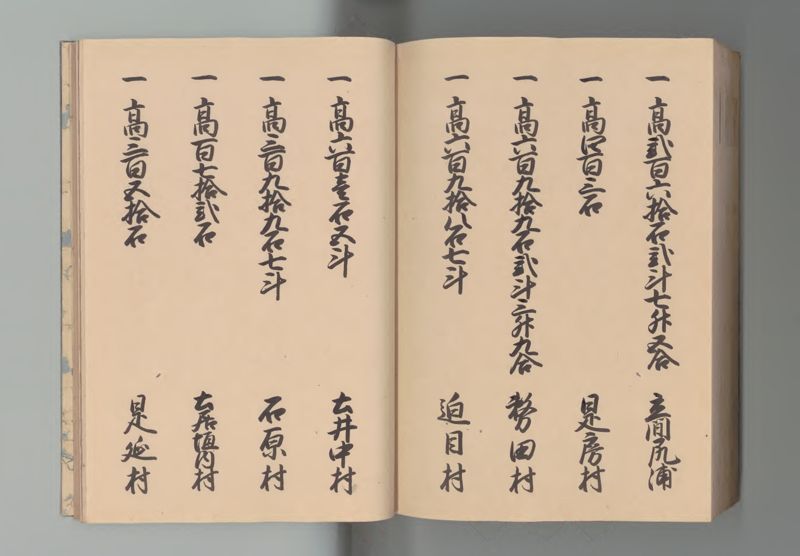 一 高弐百六拾石弐斗七升五合 立間尻浦
一 高四百三石 是房村
一 高六百九拾九石弐斗三升九合 務田村
一 高六百九拾八石七斗 迫目村
一 高六百壱石五斗 土井中村
一 高三百九拾九石七斗 石原村
一 高百七拾弐石 土居垣内村
一 高三百五拾石 是延村